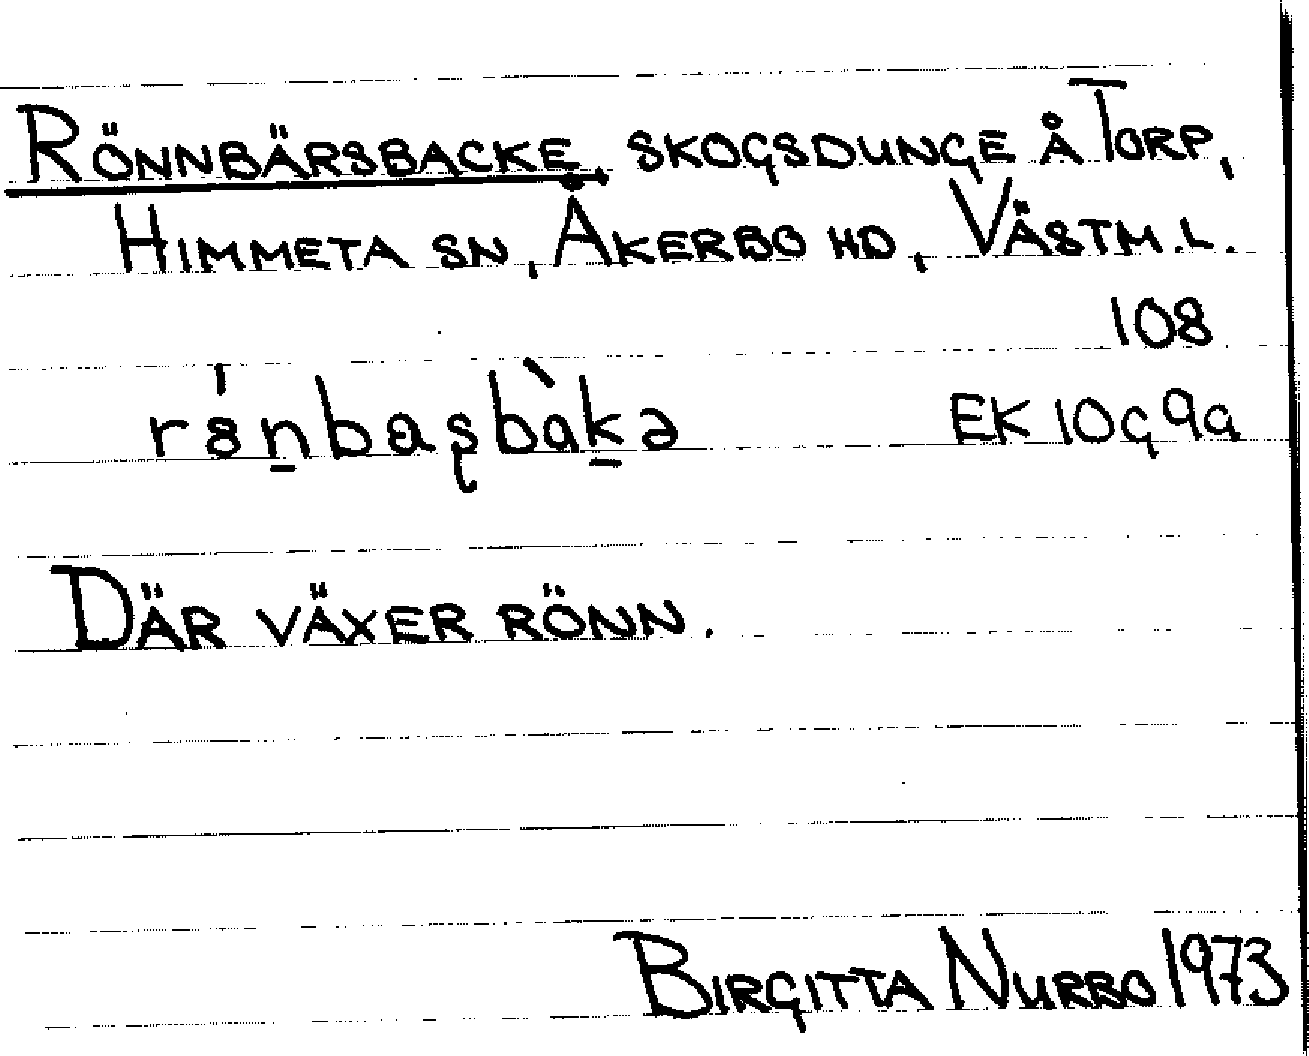 RÖNNBÄRSBACKE, SKOGSDUNGE Å TORP,
HIMMETA SN, ÅKERBO HD, VÄSTM.L.
108
EK 10G9a
DÄR VÄXER RÖNN.
BIRGITTA NURBO 1973